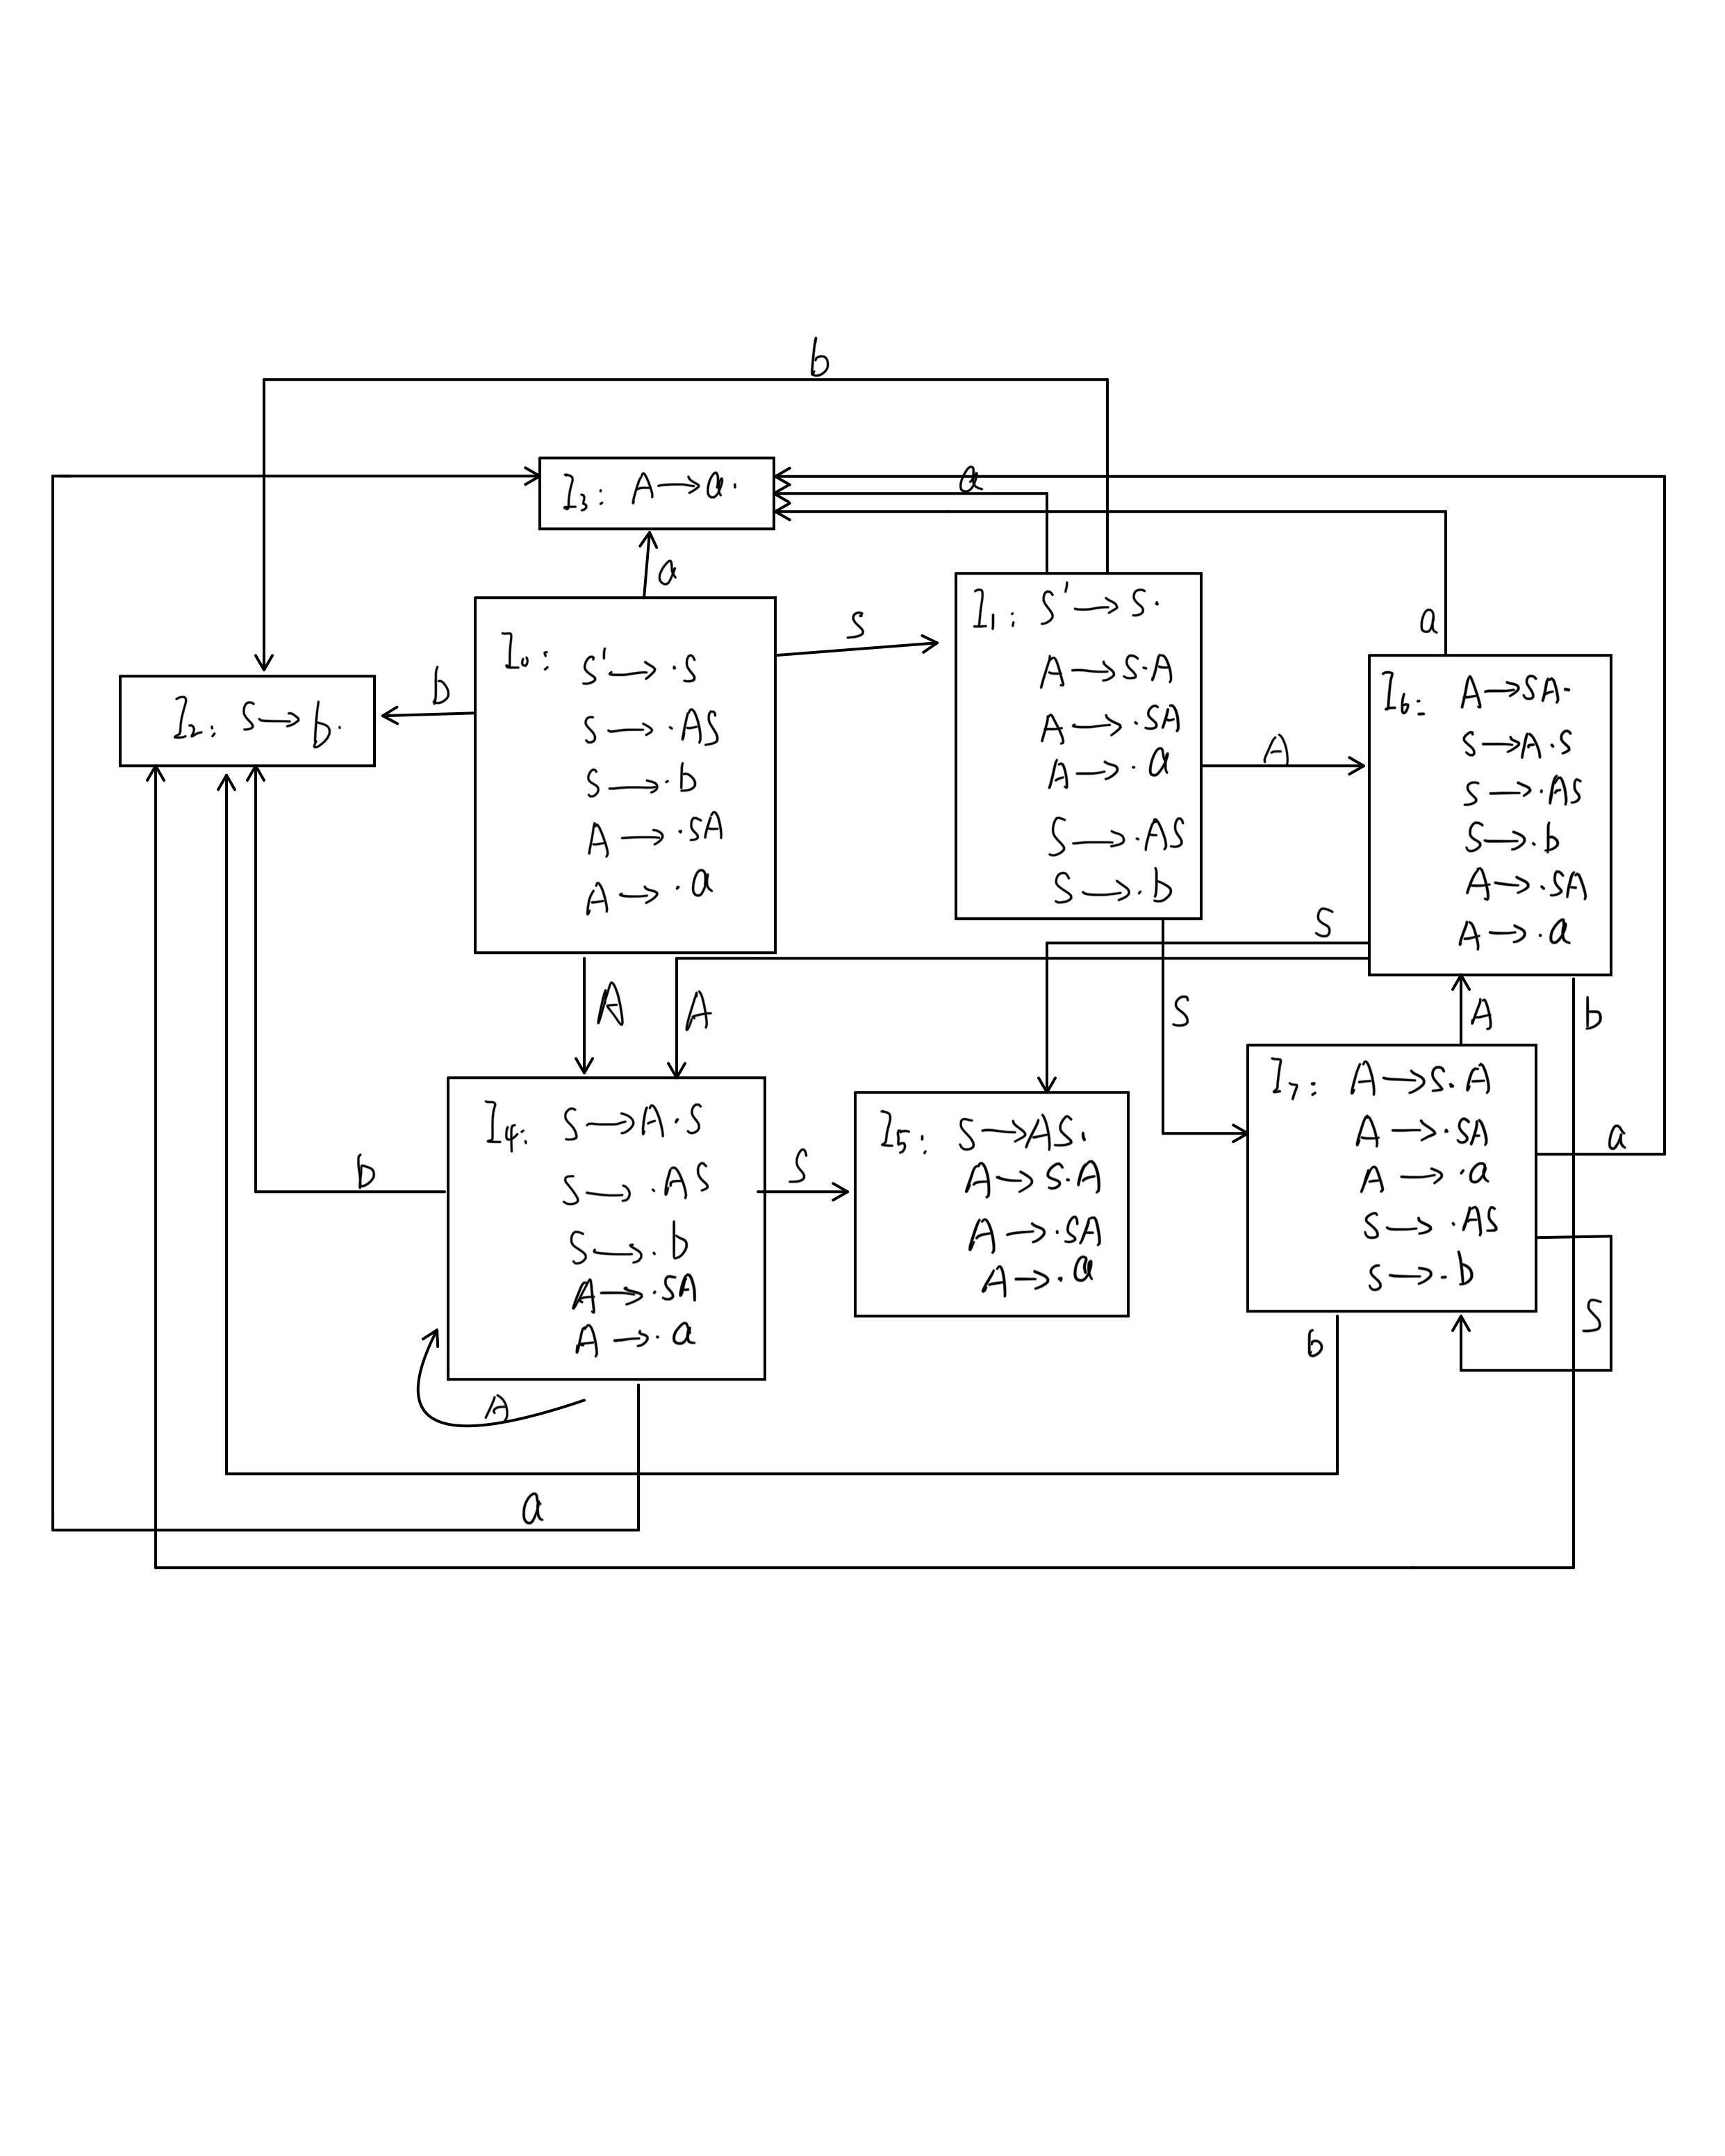 b
I₃: A→a·
a
a
S
a
b
I₀: S'→·S
S→·AS
S→·b
A→·SA
A→·a
I₁: S'→S·
A→S·A
A→·SA
A→·a
S→·AS
S→·b
A
I₆: A→SA·
S→A·S
S→·AS
S→·b
A→·SA
A→·a
I₂: S→b·
S
A
A
S
A
b
I₄: S→A·S
S→·AS
S→·b
A→·SA
A→·a
b
S
I₅: S→AS·
A→S·A
A→·SA
A→·a
I₇: A→S·A
A→·SA
A→·a
S→·AS
S→·b
a
S
b
A
a